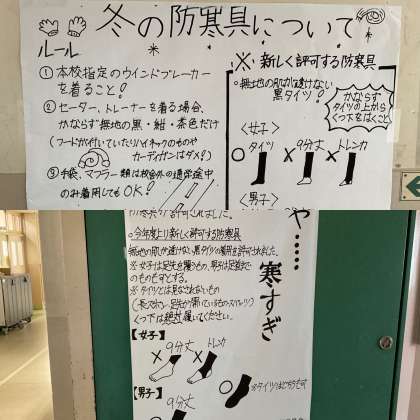 冬の防寒具について
ルール
①本校指定のウインドブレーカー
を着ること！
②セーター、トレーナーを着る場合、
かならず無地の黒・紺・茶色だけ
(フードが付いていたりハイネックのものや
カーディガンはダメ?)
③手袋、マフラー類は校舎外の通学途中
のみ着用してもOK！
※新しく許可する防寒具
・無地の肌が透けない
黒タイツ！
かならず
タイツの上から
くつ下をはくこと
<女子>
○タイツ ×9分丈 ×トレンカ
<男子>
や……寒すぎ
○今年度より新しく許可する防寒具
無地の肌が透けない黒タイツの着用を許可されました。
※女子は足先を覆うもの、男子は足首まで
のものもとする。
※タイツとは見なされないもの
くつ下は絶対履いてください。
【女子】
×9分丈 ×トレンカ
【男子】
9分丈
○